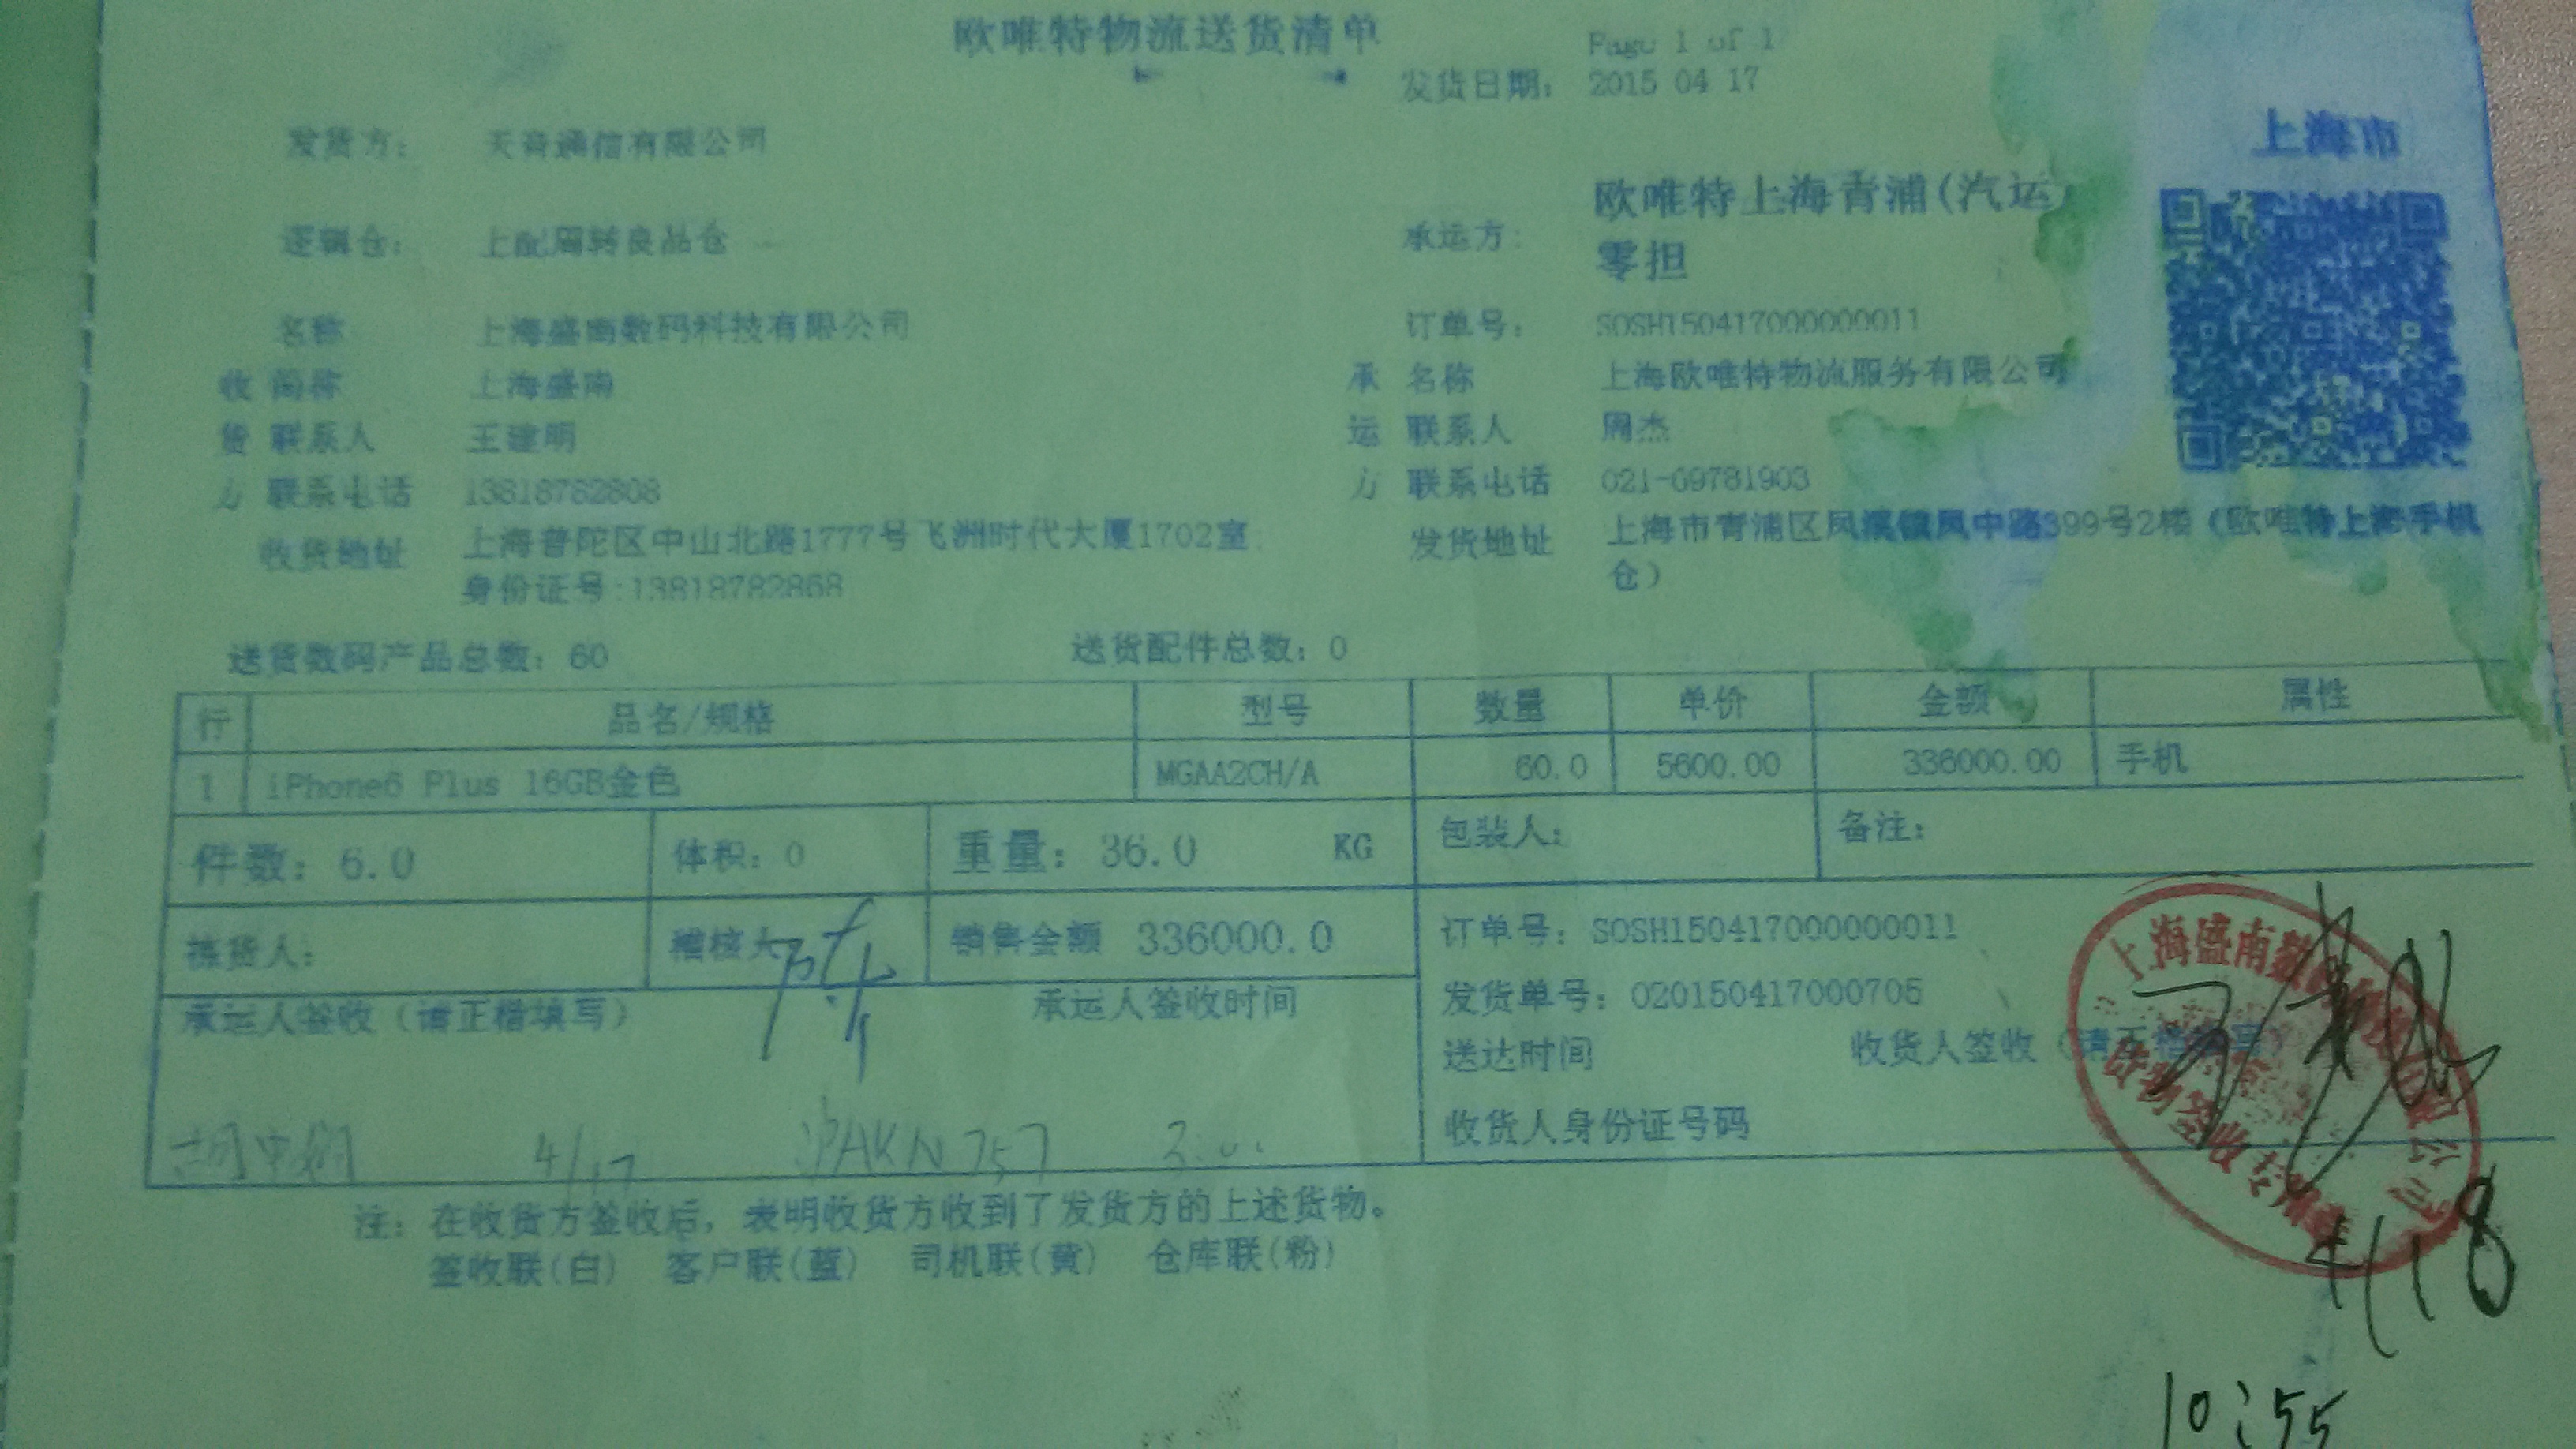 欧唯特物流送货清单
Page 1 of 1
发货日期: 2015 04 17
上海市
发货方: 天音通信有限公司
逻辑仓: 上配周转良品仓
承运方: 欧唯特上海青浦(汽运)
零担
名称 上海盛南数码科技有限公司
订单号: SOSH150417000000011
收 简称 上海盛南
承 名称 上海欧唯特物流服务有限公司
货 联系人 王建明
运 联系人 周杰
方 联系电话 13818782808
方 联系电话 021-69781903
收货地址 上海普陀区中山北路1777号飞洲时代大厦1702室
身份证号:13818782868
发货地址 上海市青浦区凤溪镇凤中路399号2楼(欧唯特上海手机
仓)
送货数码产品总数: 60 送货配件总数: 0
行 品名/规格 型号 数量 单价 金额 属性
1 iPhone6 Plus 16GB金色 MGAA2CH/A 60.0 5600.00 336000.00 手机
件数: 6.0 体积: 0 重量: 36.0 KG 包装人: 备注:
拣货人: 稽核人 销售金额 336000.0
订单号: SOSH150417000000011
发货单号: 020150417000705
承运人签收(请正楷填写) 承运人签收时间
送达时间 收货人签收(请正楷填写)
收货人身份证号码
4/17 沪AKN757
上海盛南数码科技有限公司
4/18
10:55
注: 在收货方签收后,表明收货方收到了发货方的上述货物。
签收联(白) 客户联(蓝) 司机联(黄) 仓库联(粉)